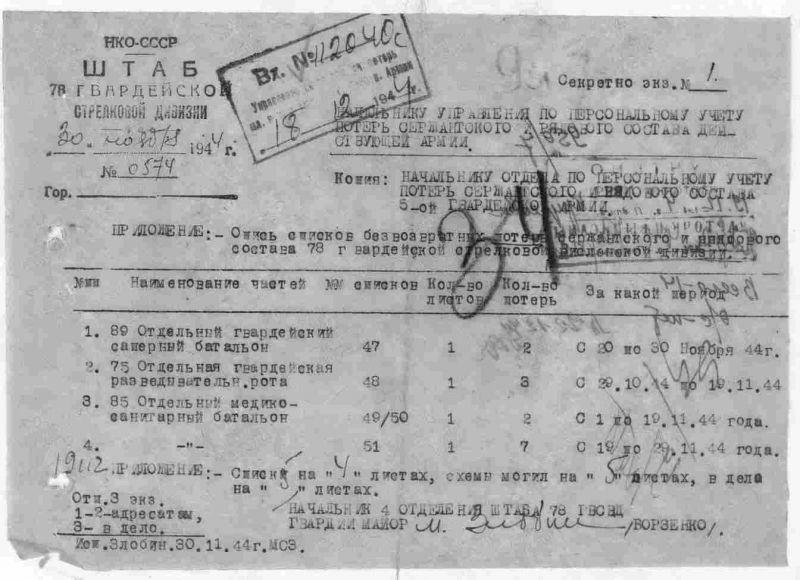 НКО-СССР
ШТАБ
78 ГВАРДЕЙСКОЙ
СТРЕЛКОВОЙ ДИВИЗИИ
"30" ноября 1944 г.
№ 0574
Гор.
Вх. № 112040с
18 12 1944 г.
Секретно экз.№ 1.
НАЧАЛЬНИКУ УПРАВЛЕНИЯ ПО ПЕРСОНАЛЬНОМУ УЧЕТУ
ПОТЕРЬ СЕРЖАНТСКОГО И РЯДОВОГО СОСТАВА ДЕЙ-
СТВУЮЩЕЙ АРМИИ.
Копия: НАЧАЛЬНИКУ ОТДЕЛА ПО ПЕРСОНАЛЬНОМУ УЧЕТУ
ПОТЕРЬ СЕРЖАНТСКОГО И РЯДОВОГО СОСТАВА
5-ой ГВАРДЕЙСКОЙ АРМИИ
ПРИЛОЖЕНИЕ:- Опись списков безвозвратных потерь сержантского и рядового
состава 78 гвардейской стрелковой Висленской дивизии.
№пп Наименование частей №№ списков Кол-во листов Кол-во потерь За какой период
1. 89 Отдельный гвардейский
саперный батальон 47 1 2 С 20 по 30 Ноября 44г.
2. 75 Отдельная гвардейская
разведывательн.рота 48 1 3 С 29.10.44 по 19.11.44
3. 85 Отдельный медико-
санитарный батальон 49/50 1 2 С 1 по 19.11.44 года.
4. -"- 51 1 7 С 19 по 29.11.44 года.
ПРИЛОЖЕНИЕ:- Списки на "4" листах, схемы могил на "5" листах, в дело
на " " листах.
Отп.3 экз.
1-2-адресатам,
3- в дело.
НАЧАЛЬНИК 4 ОТДЕЛЕНИЯ ШТАБА 78 ГВСВД
ГВАРДИИ МАЙОР /БОРЗЕНКО/.
Исп.Злобин.30.11.44г.МСЭ.
34